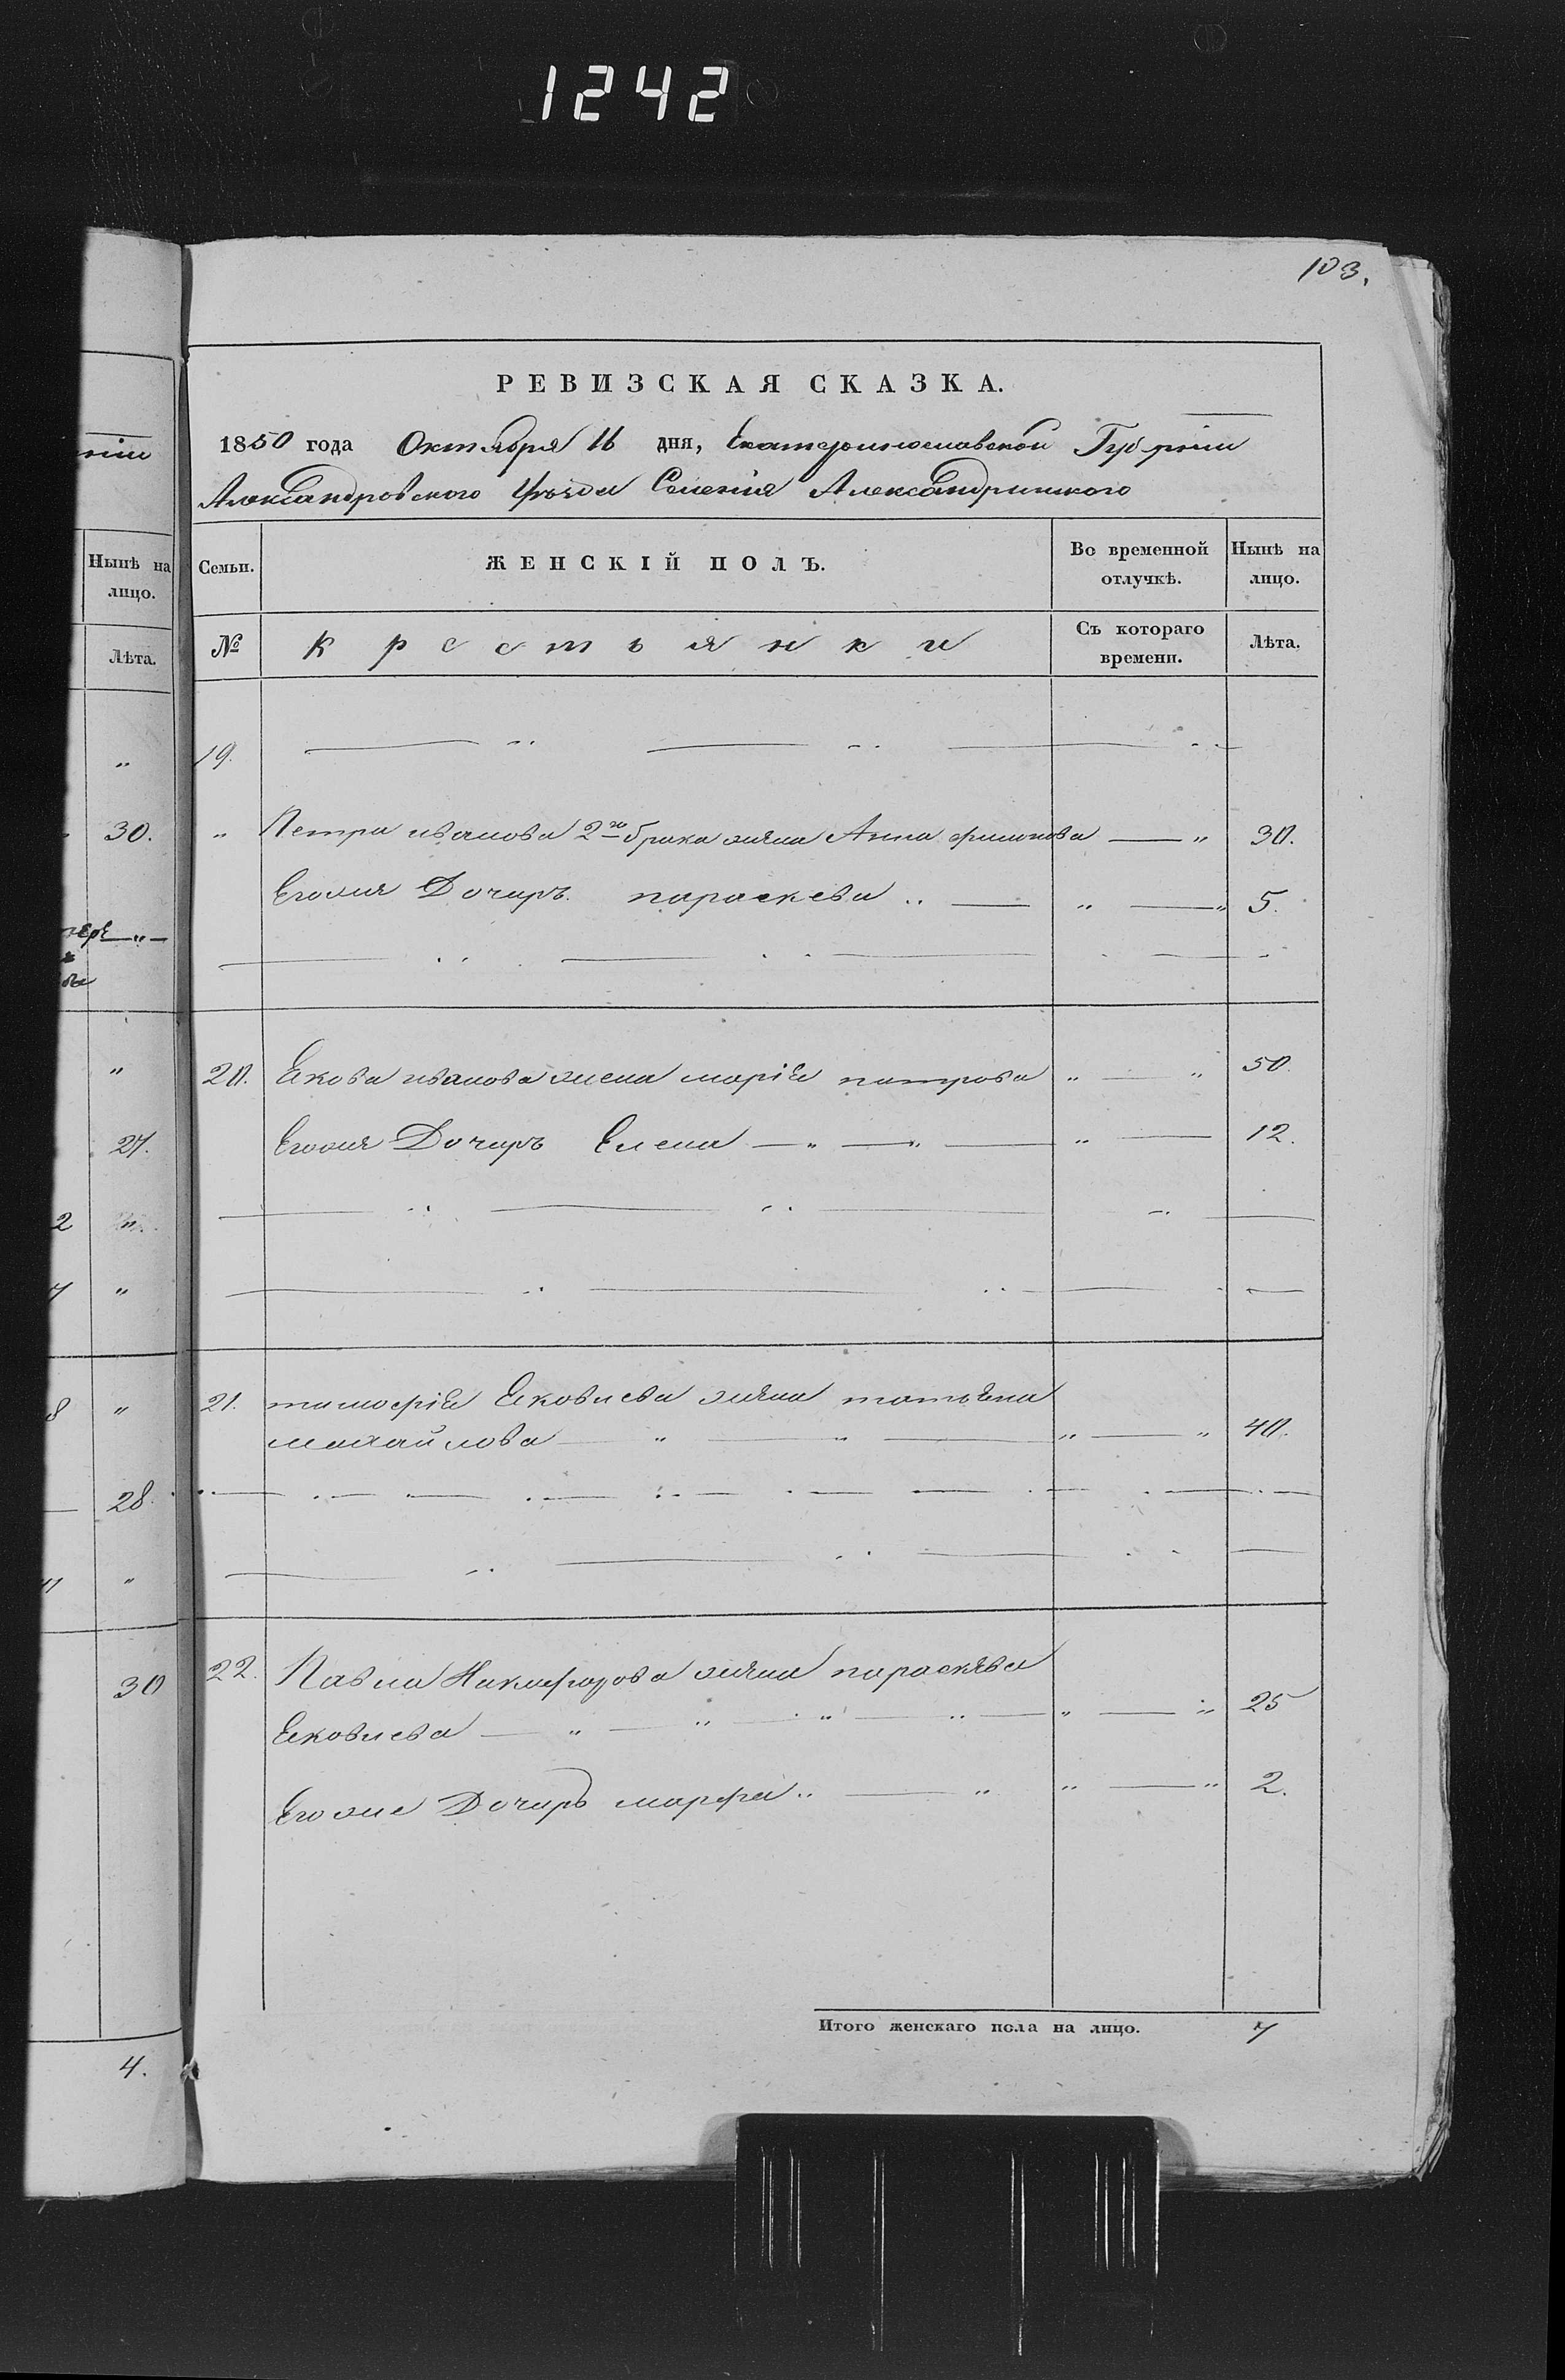 1242
103.
РЕВИЗСКАЯ СКАЗКА.
1850 года Октября 16 дня, Екатеринославской Губернии
Александровского уѣзда Селения Александринского
Нынѣ на лицо.
Лѣта.
Семьи. ЖЕНСКІЙ ПОЛЪ. Во временной отлучкѣ. Нынѣ на лицо.
№ Крестьянки Съ котораго времени. Лѣта.
19.
30. " Петра иванова 2го брака жена Анна филипова — " 30.
Егожя Дочерь параскева " — 5.
20. Екова иванова жена маріЕ петрова " — " 50.
27. Егожя Дочерь Елена — " — " — " — 12.
2 "
7 "
8 " 21. тимофіЕ Ековлева жена татьяна
михайлова — " — " — " — " 40.
28.
30 22. Павла Никифорова жена параскева
Ековлева — " — " — " — " — " 25
Егоже Дочерь марфа " — " " — " 2.
Итого женскаго пола на лицо. 7
4.